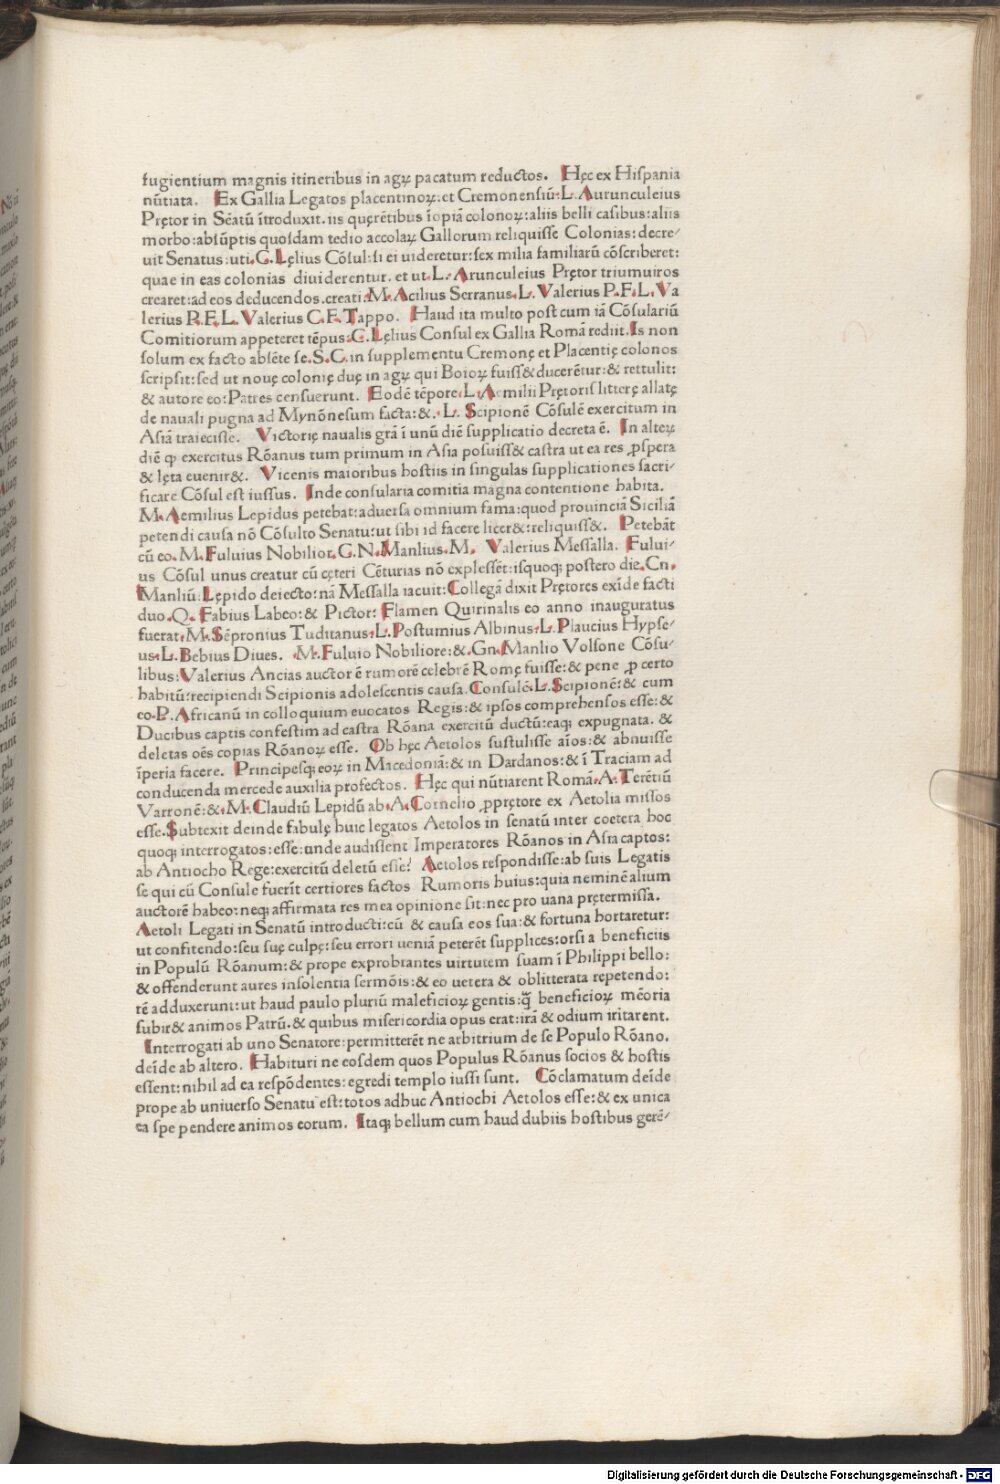 fugientium magnis itineribus in agꝝ pacatum reductos. Hęc ex Hispania
nũtiata. Ex Gallia Legatos placentinoꝝ: et Cremonensiũ. L. Aurunculeius
Prętor in Sẽatũ ĩtroduxit. iis quęrẽtibus ĩopiã colonoꝝ: aliis belli casibus: aliis
morbo: absũptis quosdam tedio accolaꝝ Gallorum reliquisse Colonias: decre⸗
uit Senatus: uti. C. Lęlius Cõsul: si ei uideretur: sex milia familiarũ cõscriberet:
quae in eas colonias diuiderentur. et ut. L. Arunculeius Prętor triumuiros
crearet: ad eos deducendos. creati. M. Acilius Serranus. L. Valerius P. F. L. Va
lerius P. F. L. Valerius C. F. Tappo. Haud ita multo post cum iã Cõsulariũ
Comitiorum appeteret tẽpus: C. Lęlius Consul ex Gallia Romã rediit. Is non
solum ex facto absẽte se. S. C. in supplementu Cremonę et Placentię colonos
scripsit: sed ut nouę colonię duę in agꝝ qui Boioꝝ fuiss& ducerẽtur: & rettulit:
& autore eo: Patres censuerunt. Eodẽ tẽpore. L. Aemilii Prętoris litterę allatę
de nauali pugna ad Mynõnesum facta: &. L. Scipionẽ Cõsulẽ exercitum in
Asiã traiecisse. Victorię naualis grã ĩ unũ diẽ supplicatio decreta ẽ. In alteꝝ
diẽ ꝙ exercitus Rõanus tum primum in Asia posuiss& castra ut ea res ꝓspera
& lęta euenir&. Vicenis maioribus hostiis in singulas supplicationes sacri⸗
ficare Cõsul est iussus. Inde consularia comitia magna contentione habita.
M. Aemilius Lepidus petebat: aduersa omnium fama: quod prouinciã Siciliã
petendi causa nõ Cõsulto Senatu: ut sibi id facere licer&: reliquiss&. Petebãt
cũ eo. M. Fuluius Nobilior. G. N. Manlius. M. Valerius Messalla. Fului⸗
us Cõsul unus creatur cũ cęteri Cẽturias nõ explessẽt: isquoqꝫ postero die. Cn.
Manliũ: Lępido deiecto: nã Messalla iacuit: Collegã dixit Prętores exĩde facti
duo. Q. Fabius Labeo: & Pictor: Flamen Quirinalis eo anno inauguratus
fuerat. M. Sẽpronius Tuditanus. L. Postumius Albinus. L. Plaucius Hypse⸗
us. L. Bebius Diues. M. Fuluio Nobiliore: & Gn. Manlio Volsone Cõsu⸗
libus: Valerius Ancias auctor ẽ rumorẽ celebrẽ Romę fuisse: & pene ꝓ certo
habitũ: recipiendi Scipionis adolescentis causa. Consulẽ. L. Scipionẽ: & cum
eo. P. Africanũ in colloquium euocatos Regis: & ipsos comprehensos esse: &
Ducibus captis confestim ad castra Rõana exercitũ ductũ: eaqꝫ expugnata. &
deletas oẽs copias Rõanoꝝ esse. Ob hęc Aetolos sustulisse aĩos: & abnuisse
ĩperia facere. Principesqꝫ eoꝝ in Macedoniã: & in Dardanos: & ĩ Traciam ad
conducenda mercede auxilia profectos. Hęc qui nũtiarent Romã. A. Terẽtiũ
Varronẽ: &. M. Claudiũ Lepidũ ab. A. Cornelio ꝓprętore ex Aetolia missos
esse. Subtexit deinde fabulę huic legatos Aetolos in senatũ inter coetera hoc
quoqꝫ interrogatos: esse: unde audissent Imperatores Rõanos in Asia captos:
ab Antiocho Rege: exercitũ deletũ esse? Aetolos respondisse: ab suis Legatis
se qui cũ Consule fuerĩt certiores factos Rumoris huius: quia neminẽ alium
auctorẽ habeo: neqꝫ affirmata res mea opinione sit: nec pro uana prętermissa.
Aetoli Legati in Senatũ introducti: cũ & causa eos sua: & fortuna hortaretur:
ut confitendo: seu suę culpę: seu errori ueniã peterẽt supplices: orsi a beneficiis
in Populũ Rõanum: & prope exprobrantes uirtutem suam ĩ Philippi bello:
& offenderunt aures insolentia sermõis: & eo uetera & oblitterata repetendo:
rẽ adduxerunt: ut haud paulo pluriũ maleficioꝝ gentis: q̃ beneficioꝝ mẽoria
subir& animos Patrũ. & quibus misericordia opus erat: irã & odium iritarent.
Interrogati ab uno Senatore: permitterẽt ne arbitrium de se Populo Rõano.
deĩde ab altero. Habituri ne eosdem quos Populus Rõanus socios & hostis
essent: nihil ad ea respõdentes: egredi templo iussi sunt. Cõclamatum deĩde
prope ab uniuerso Senatu est: totos adhuc Antiochi Aetolos esse: & ex unica
ea spe pendere animos eorum. Itaqꝫ bellum cum haud dubiis hostibus gerẽ⸗
Digitalisierung gefördert durch die Deutsche Forschungsgemeinschaft - DFG